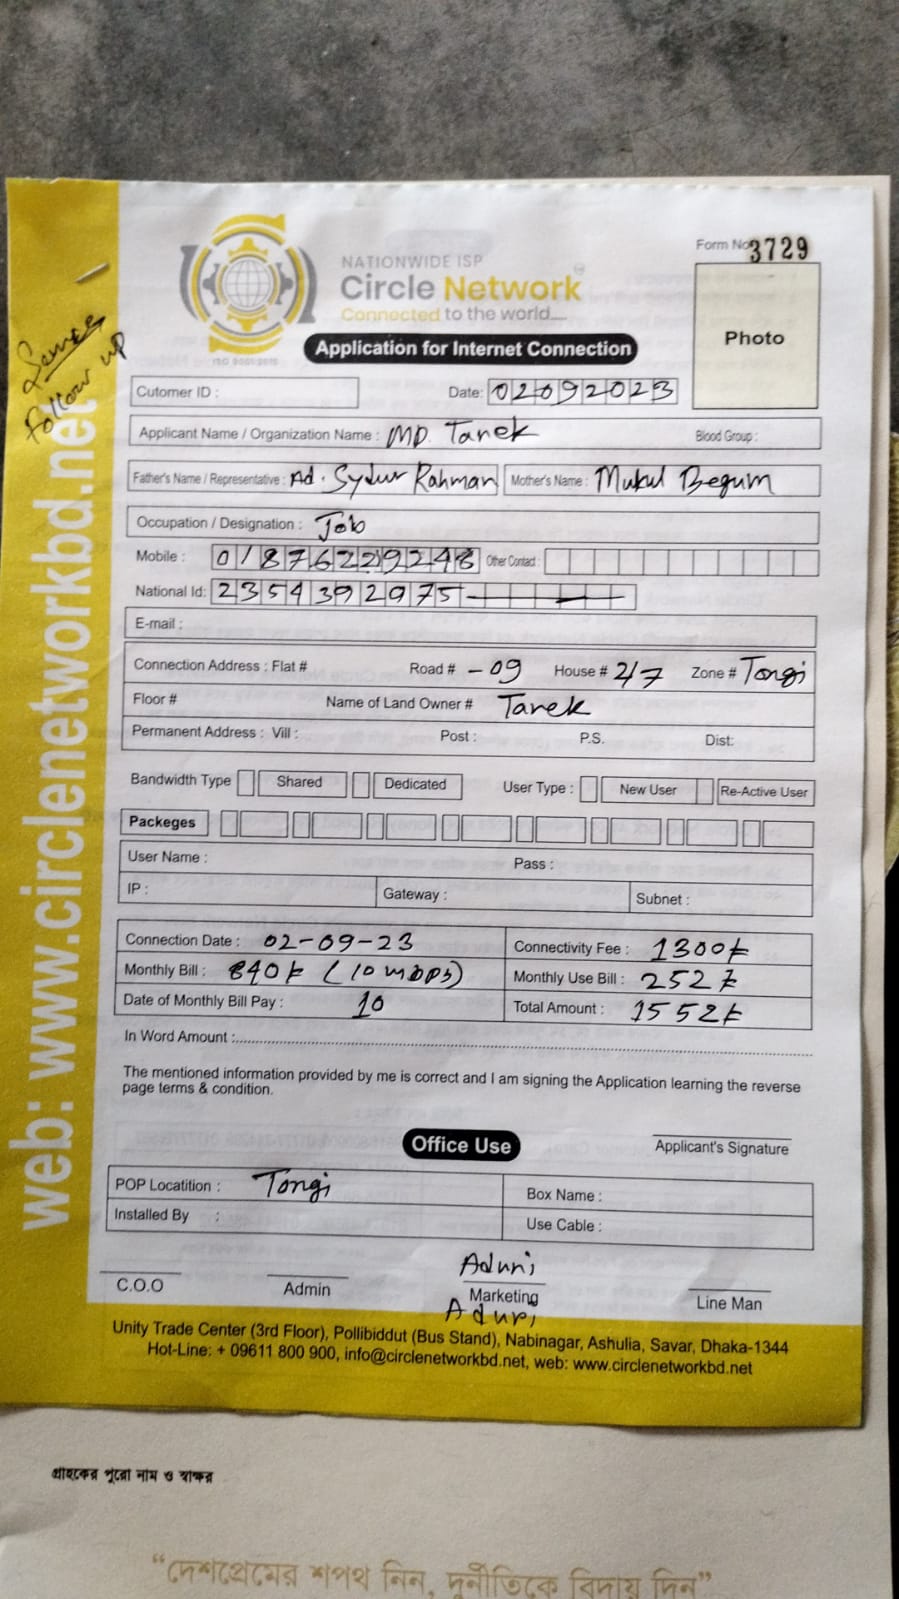 Form No 3729
NATIONWIDE ISP
Circle Network
Connected to the world....
ISO 9001:2015
Photo
Application for Internet Connection
follow up
Cutomer ID :
Date: 02092023
Applicant Name / Organization Name : MD. Tarek
Blood Group :
Father's Name / Representative : Ad. Sydur Rahman
Mother's Name : Mukul Begum
Occupation / Designation : Job
Mobile : 01876229248
Other Contact :
National Id: 2354392975
E-mail :
Connection Address : Flat # Road # - 09 House # 2/7 Zone # Tongi
Floor # Name of Land Owner # Tarek
Permanent Address : Vill : Post : P.S. Dist:
Bandwidth Type Shared Dedicated User Type : New User Re-Active User
Packeges
User Name : Pass :
IP : Gateway : Subnet :
Connection Date : 02-09-23 Connectivity Fee : 1300৳
Monthly Bill : 840৳ (10 mbps) Monthly Use Bill : 252৳
Date of Monthly Bill Pay : 10 Total Amount : 1552৳
In Word Amount :
The mentioned information provided by me is correct and I am signing the Application learning the reverse
page terms & condition.
Applicant's Signature
Office Use
POP Locatition : Tongi Box Name :
Installed By : Use Cable :
Aduri
C.O.O Admin Marketing Line Man
Aduri
Unity Trade Center (3rd Floor), Pollibiddut (Bus Stand), Nabinagar, Ashulia, Savar, Dhaka-1344
Hot-Line: + 09611 800 900, info@circlenetworkbd.net, web: www.circlenetworkbd.net
web: www.circlenetworkbd.net
গ্রাহকের পুরো নাম ও স্বাক্ষর
“দেশপ্রেমের শপথ নিন, দুর্নীতিকে বিদায় দিন”